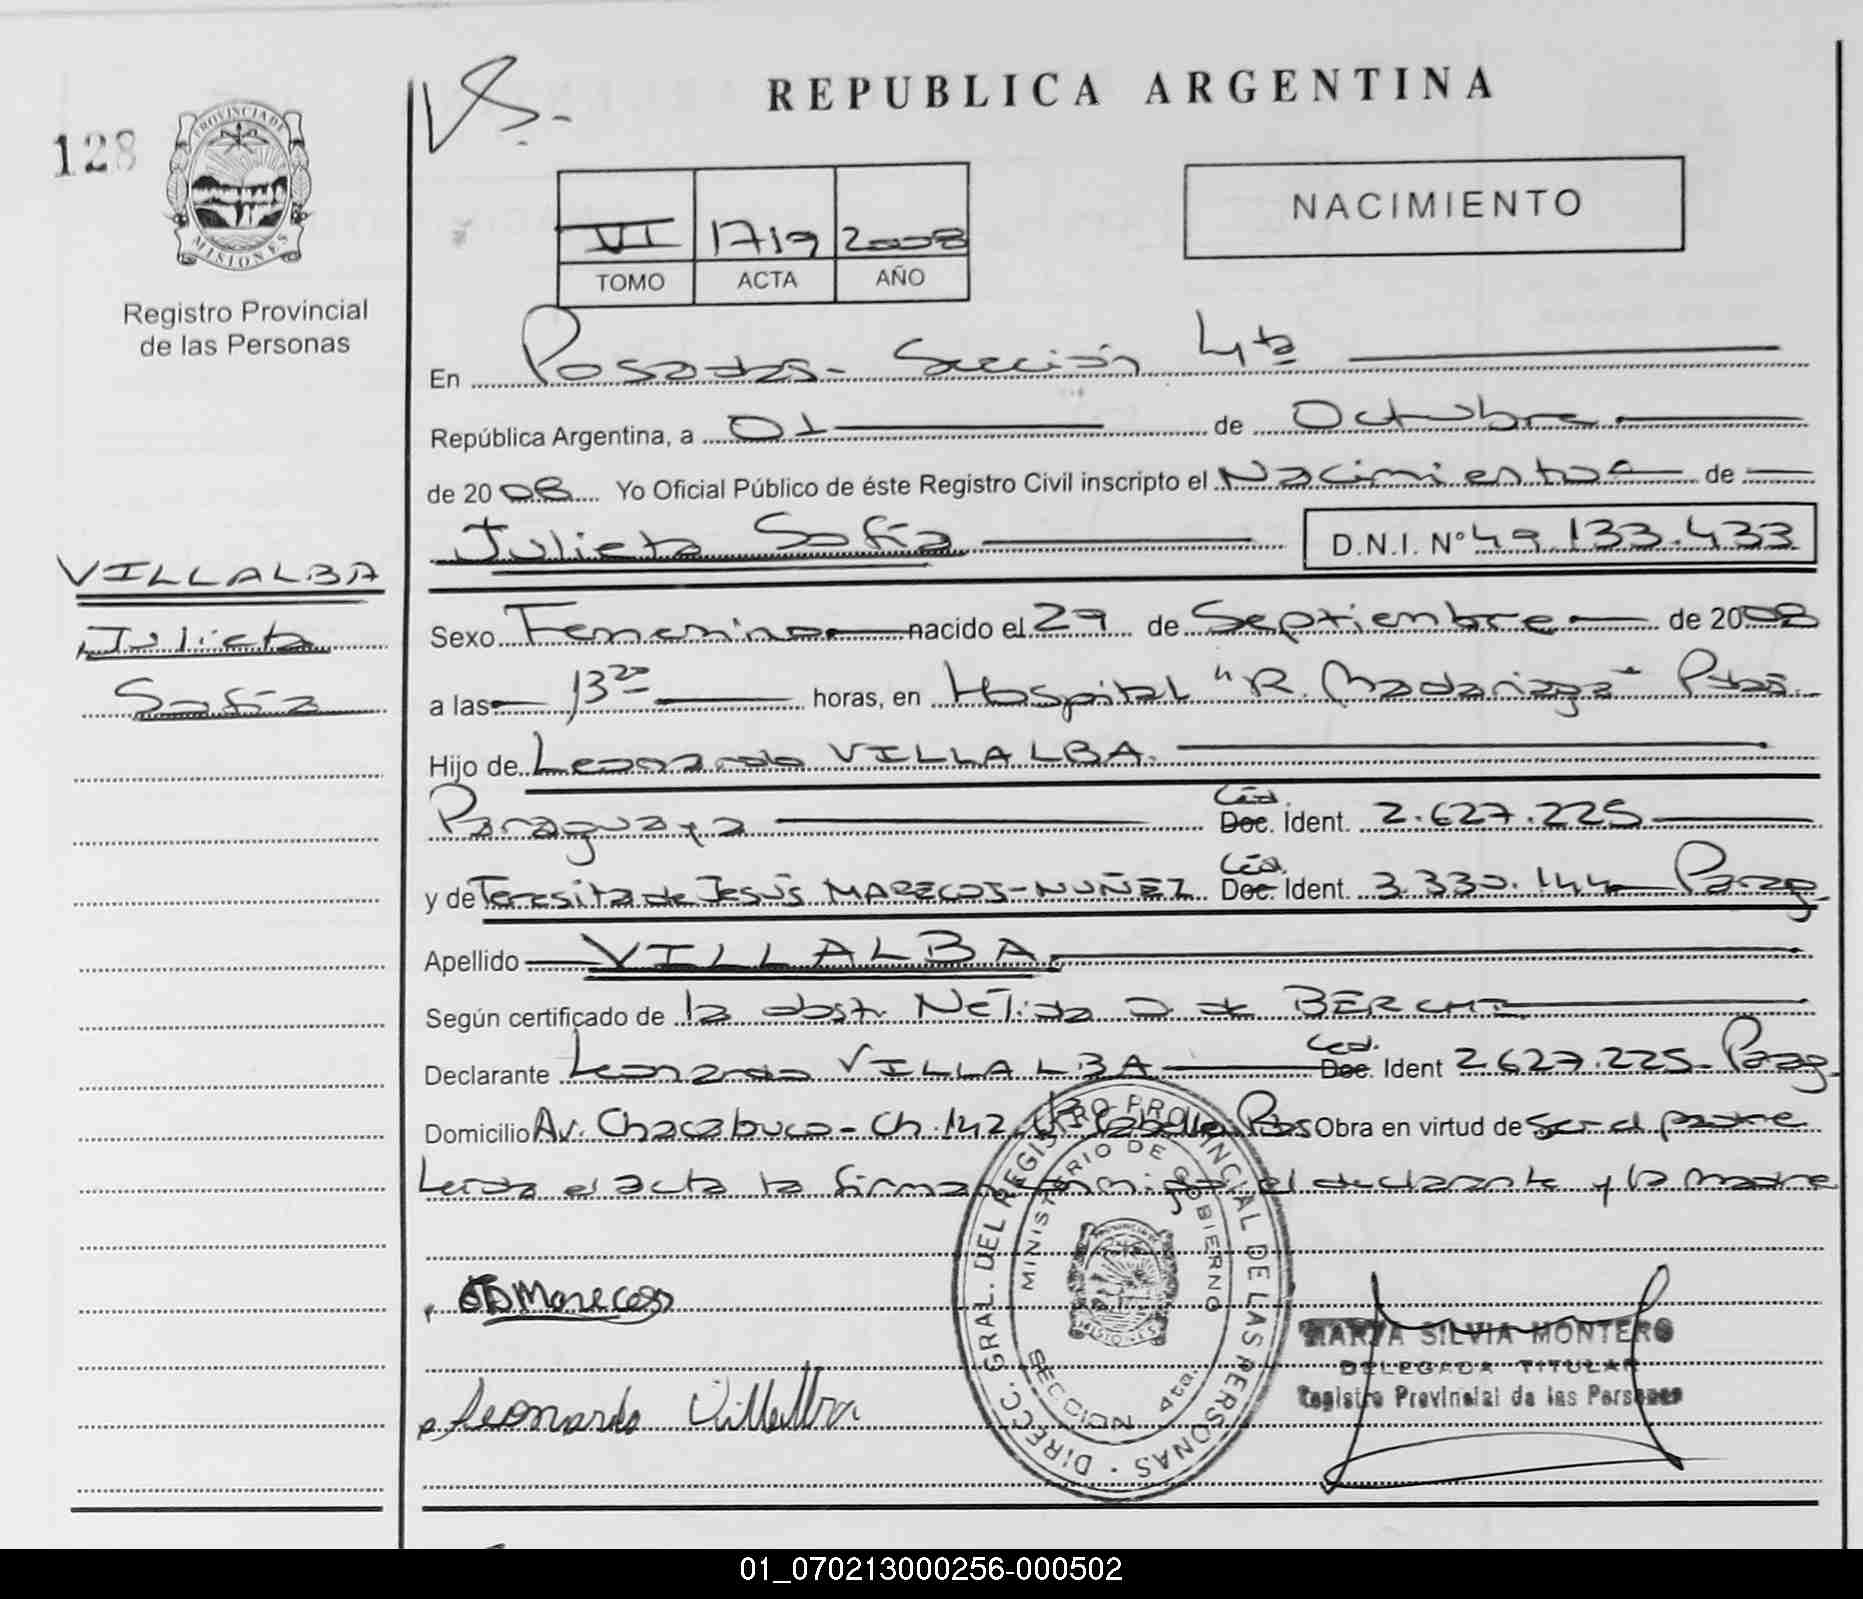 128
PROVINCIA DE
MISIONES
Registro Provincial
de las Personas
VS.-
REPUBLICA ARGENTINA
VI 1719 2008
TOMO ACTA AÑO
NACIMIENTO
En Posadas- Sección 4ta
República Argentina, a 01 de Octubre
de 2008 Yo Oficial Público de éste Registro Civil inscripto el Nacimiento de
Julieta Sofía D.N.I. Nº 49.133.433
VILLALBA
Julieta
Sofía
Sexo Femenino nacido el 29 de Septiembre de 2008
a las 13 20 horas, en Hospital "R. Madariaga" Pdas.
Hijo de Leonardo VILLALBA.
Paraguaya Céd. Doc. Ident. 2.627.225
y de Teresita de Jesús MARECOS-NUÑEZ Céd. Doc. Ident. 3.330.144 Parag.
Apellido VILLALBA.
Según certificado de la obst. Nélida D. de
Declarante Leonardo VILLALBA Ced. Doc. Ident 2.627.225- Parag.
Domicilio Av. Chacabuco- Ch. 142 Obra en virtud de ser el padre
Leída el acta la firman conmigo el declarante y la madre
Marecos
Leonardo Villalba
DIRECC. GRAL. DEL REGISTRO PROVINCIAL DE LAS PERSONAS
MINISTERIO DE GOBIERNO
SECCION 4ta.
MARTA SILVIA MONTERO
DELEGADA TITULAR
Registro Provincial de las Personas
01_070213000256-000502